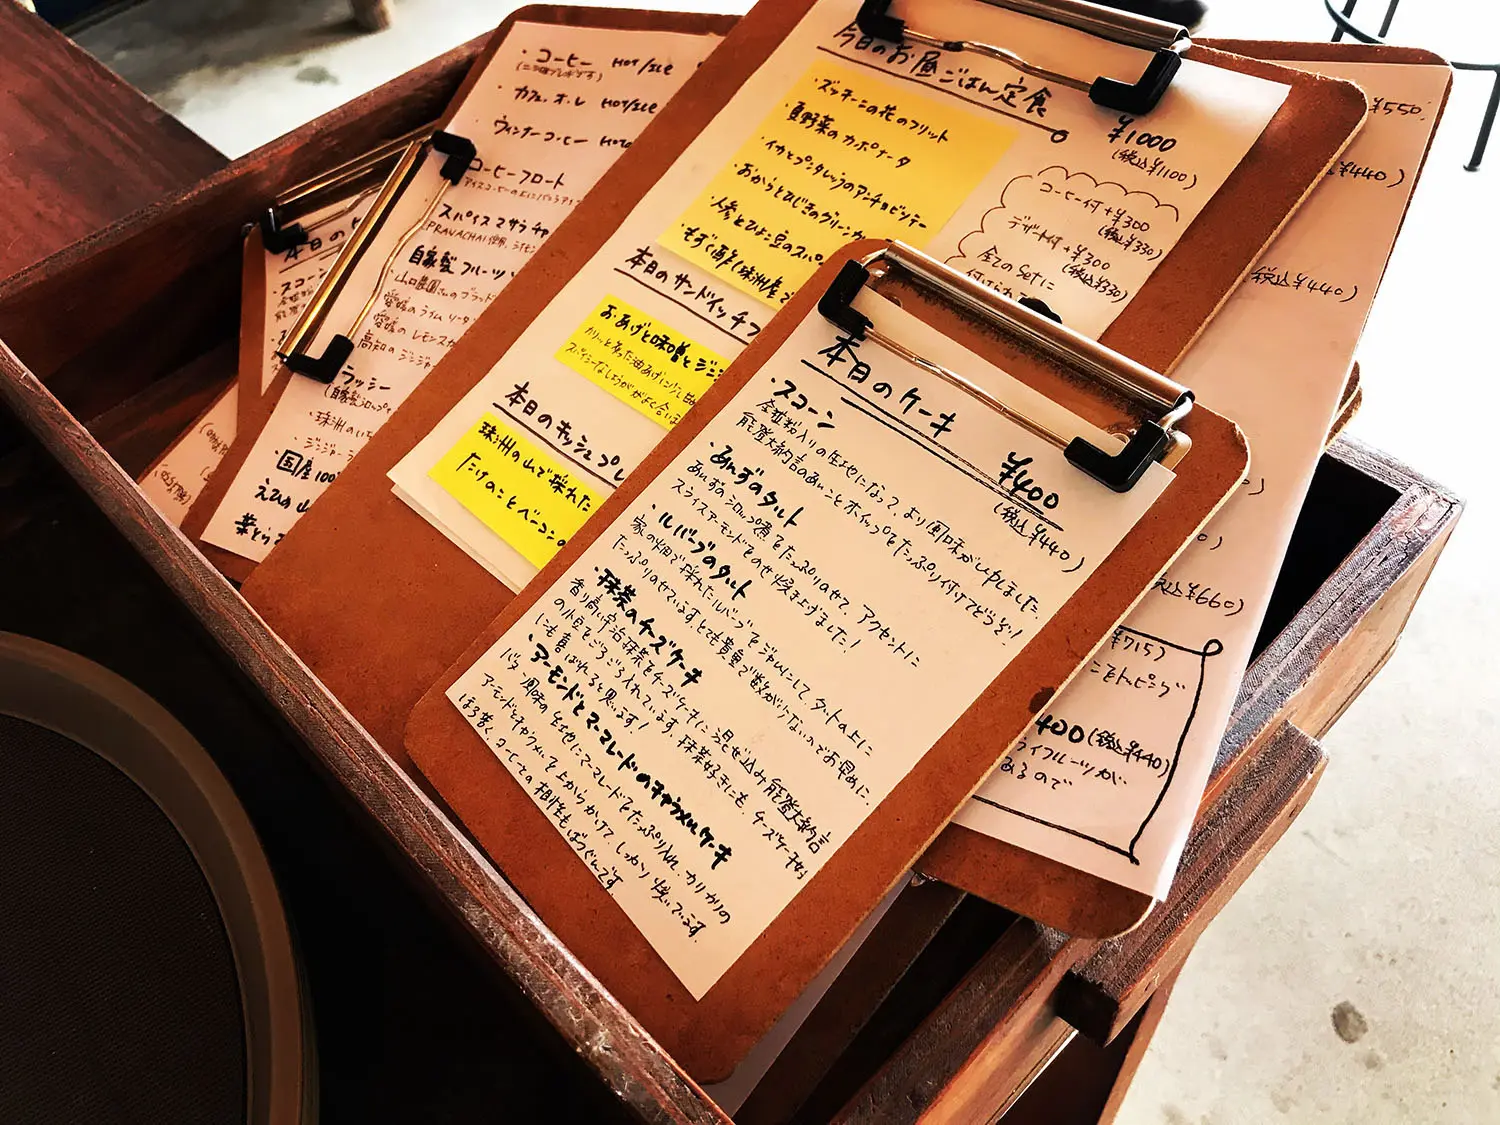 本日のケーキ
¥400
(税込¥440)
・スコーン
全粒粉入りの生地になって、より風味がUPしました。
能登大納言のあんことホイップをたっぷり付けてどうぞ!
・あんずのタルト
あんずのシロップ煮をたっぷりのせて、アクセントに
スライスアーモンドをのせ焼き上げました!
・ルバーブのタルト
家の畑で採れたルバーブをジャムにして、タルトの上に
たっぷりのせています。とても貴重で数が少ないのでお早めに。
・抹茶のチーズケーキ
香り高い宇治抹茶をチーズケーキに混ぜ込み能登大納言
の小豆をごろごろ入れています。抹茶好きにも、チーズケーキ好き
にも喜ばれると思います!
・アーモンドとマーマレードのキャラメルケーキ
バター風味の生地にマーマレードをたっぷり入れ、カリカリの
アーモンドとキャラメルを上からかけて、しっかり焼いています。
ほろ苦く、コーヒーとの相性もばつぐんです。
今日のお昼ごはん定食
¥1000
(税込¥1100)
・ズッキーニの花のフリット
・夏野菜のカポナータ
・イカとプンタレッラのアンチョビソテー
・おからとひじきのグリーンカ
・人参とひよこ豆のスパ
・もずく酢(珠洲産で
コーヒー付+¥300
(税込¥330)
デザート付+¥300
(税込¥330)
全てのSetに
本日のサンドイッチプ
おあげと味噌とジンジ
カリッと炙った油あげに少し甘め
スパイシーなしょうががよく合いま
本日のキッシュプレ
珠洲の山で採れた
たけのことベーコンの
・コーヒー HOT/ICE
・カフェ・オ・レ HOT/ICE
・ウィンナーコーヒー HOT
コーヒーフロート
スパイスマサラチャ
自家製フルーツ
山口農園さんのブラッド
愛媛のライム
愛媛のレモンスカ
高知のジンジャー
ラッシー
(自家製シロップ
・珠洲のいち
・ジンジャーラ
・国産100
えひめ
本日の
・スコーン
¥550
¥440)
(税込¥440)
税込¥660)
¥715)
トッピング
400(税込¥440)
ライフルーツが
あるので